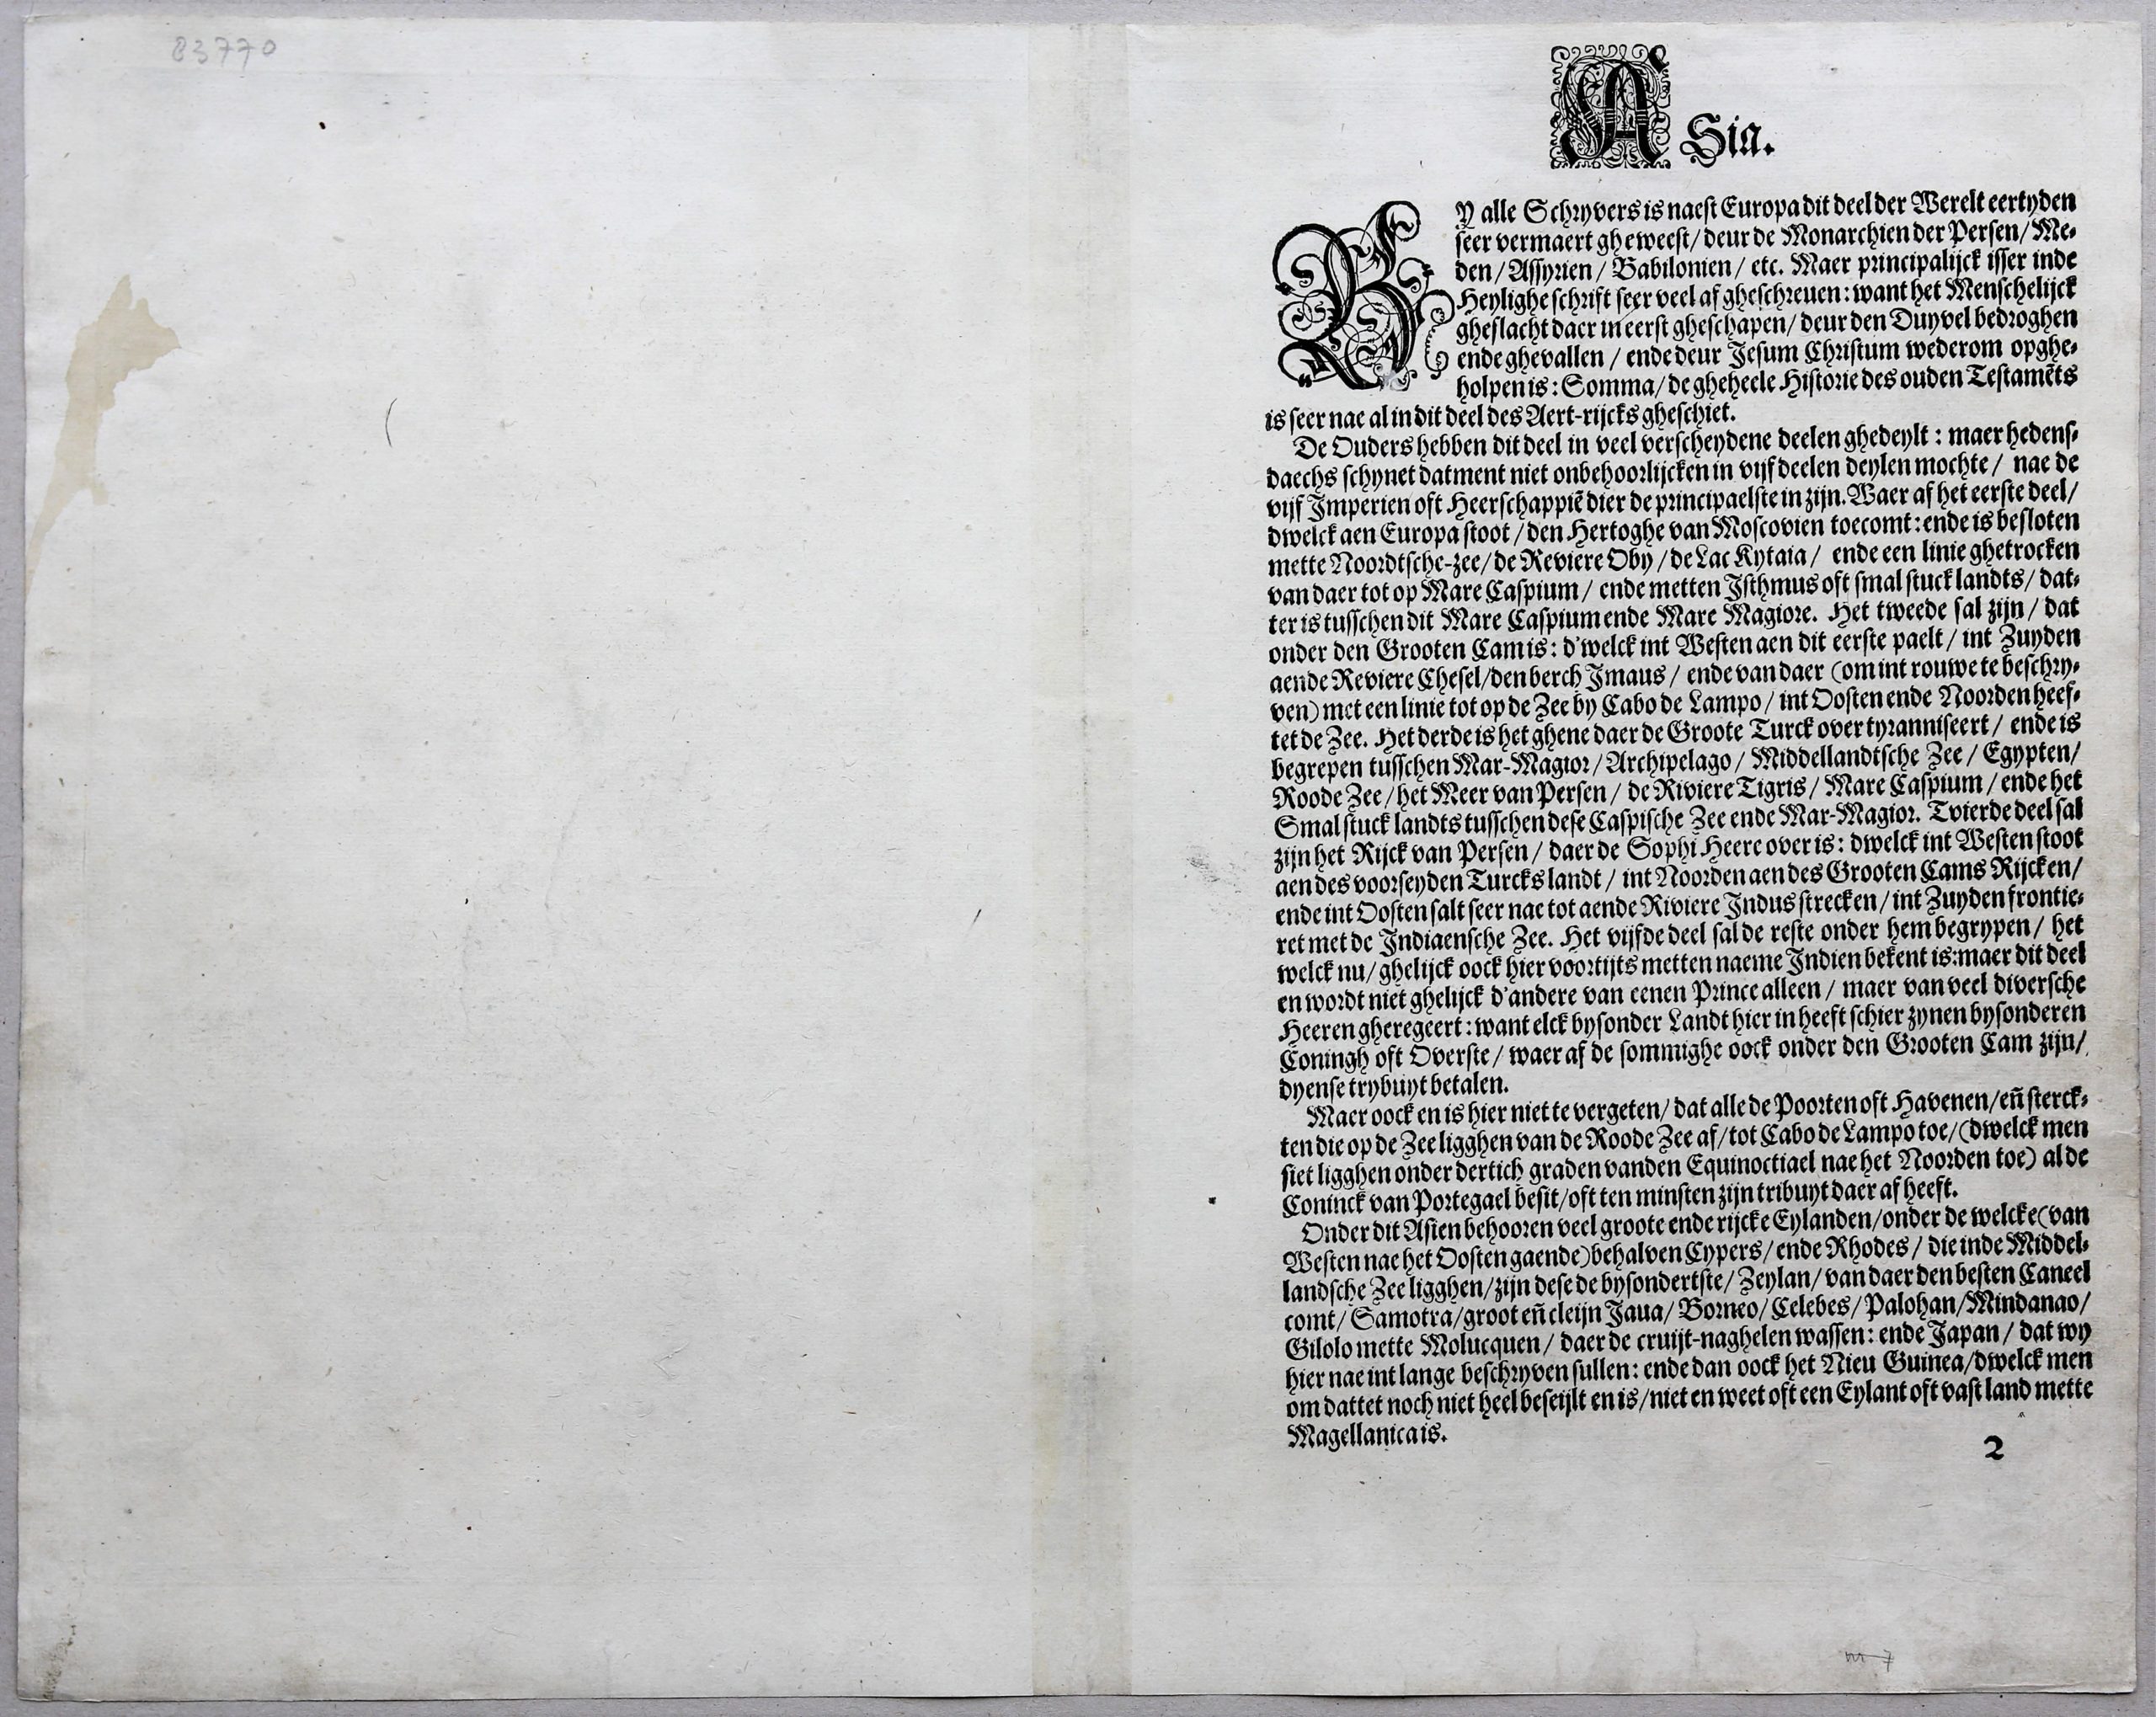 83770
ASia.
BY alle Schryvers is naest Europa dit deel der Werelt eertyden
seer vermaert gheweest/ deur de Monarchien der Persen/ Me-
den/ Assyrien/ Babilonien/ etc. Maer principalijck isser inde
Heylighe schrift seer veel af gheschreuen: want het Menschelijck
gheslacht daer in eerst gheschapen/ deur den Duyvel bedroghen
ende ghevallen/ ende deur Jesum Christum wederom opghe-
holpen is: Somma/ de gheheele Historie des ouden Testamẽts
is seer nae al in dit deel des Aert-rijcks gheschiet.
De Ouders hebben dit deel in veel verscheydene deelen ghedeylt: maer hedens-
daechs schynet datment niet onbehoorlijcken in vijf deelen deylen mochte/ nae de
vijf Imperien oft Heerschappiẽ dier de principaelste in zijn. Waer af het eerste deel/
dwelck aen Europa stoot/ den Hertoghe van Moscovien toecomt: ende is besloten
mette Noordtsche-zee/ de Reviere Oby/ de Lac Kytaia/ ende een linie ghetrocken
van daer tot op Mare Caspium/ ende metten Isthmus oft smal stuck landts/ dat-
ter is tusschen dit Mare Caspium ende Mare Magiore. Het tweede sal zijn/ dat
onder den Grooten Cam is: d'welck int Westen aen dit eerste paelt/ int Zuyden
aende Reviere Chesel/ den berch Imaus/ ende van daer (om int rouwe te beschry-
ven) met een linie tot op de Zee by Cabo de Lampo/ int Oosten ende Noorden heef-
tet de Zee. Het derde is het ghene daer de Groote Turck over tyranniseert/ ende is
begrepen tusschen Mar-Magior/ Archipelago/ Middellandtsche Zee/ Egypten/
Roode Zee/ het Meer van Persen/ de Riviere Tigris/ Mare Caspium/ ende het
Smal stuck landts tusschen dese Caspische Zee ende Mar-Magior. Tvierde deel sal
zijn het Rijck van Persen/ daer de Sophi Heere over is: dwelck int Westen stoot
aen des voorseyden Turcks landt/ int Noorden aen des Grooten Cams Rijcken/
ende int Oosten salt seer nae tot aende Riviere Indus strecken/ int Zuyden frontie-
ret met de Indiaensche Zee. Het vijfde deel sal de reste onder hem begrypen/ het
welck nu/ ghelijck oock hier voortijts metten naeme Indien bekent is: maer dit deel
en wordt niet ghelijck d'andere van eenen Prince alleen/ maer van veel diversche
Heeren gheregeert: want elck bysonder Landt hier in heeft schier zynen bysonderen
Coningh oft Overste/ waer af de sommighe oock onder den Grooten Cam zijn/
dyense trybuyt betalen.
Maer oock en is hier niet te vergeten/ dat alle de Poorten oft Havenen/ eñ sterck-
ten die op de Zee ligghen van de Roode Zee af/ tot Cabo de Lampo toe/ (dwelck men
siet ligghen onder dertich graden vanden Equinoctiael nae het Noorden toe) al de
Coninck van Portegael besit/ oft ten minsten zijn tribuyt daer af heeft.
Onder dit Asien behooren veel groote ende rijcke Eylanden/ onder de welcke (van
Westen nae het Oosten gaende) behalven Cypers/ ende Rhodes/ die inde Middel-
landsche Zee ligghen/ zijn dese de bysondertste/ Zeylan/ van daer den besten Caneel
comt/ Samotra/ groot eñ cleijn Jaua/ Borneo/ Celebes/ Palohan/ Mindanao/
Gilolo mette Molucquen/ daer de cruijt-naghelen wassen: ende Japan/ dat wy
hier nae int lange beschryven sullen: ende dan oock het Nieu Guinea/ dwelck men
om dattet noch niet heel beseijlt en is/ niet en weet oft een Eylant oft vast land mette
Magellanica is.
2